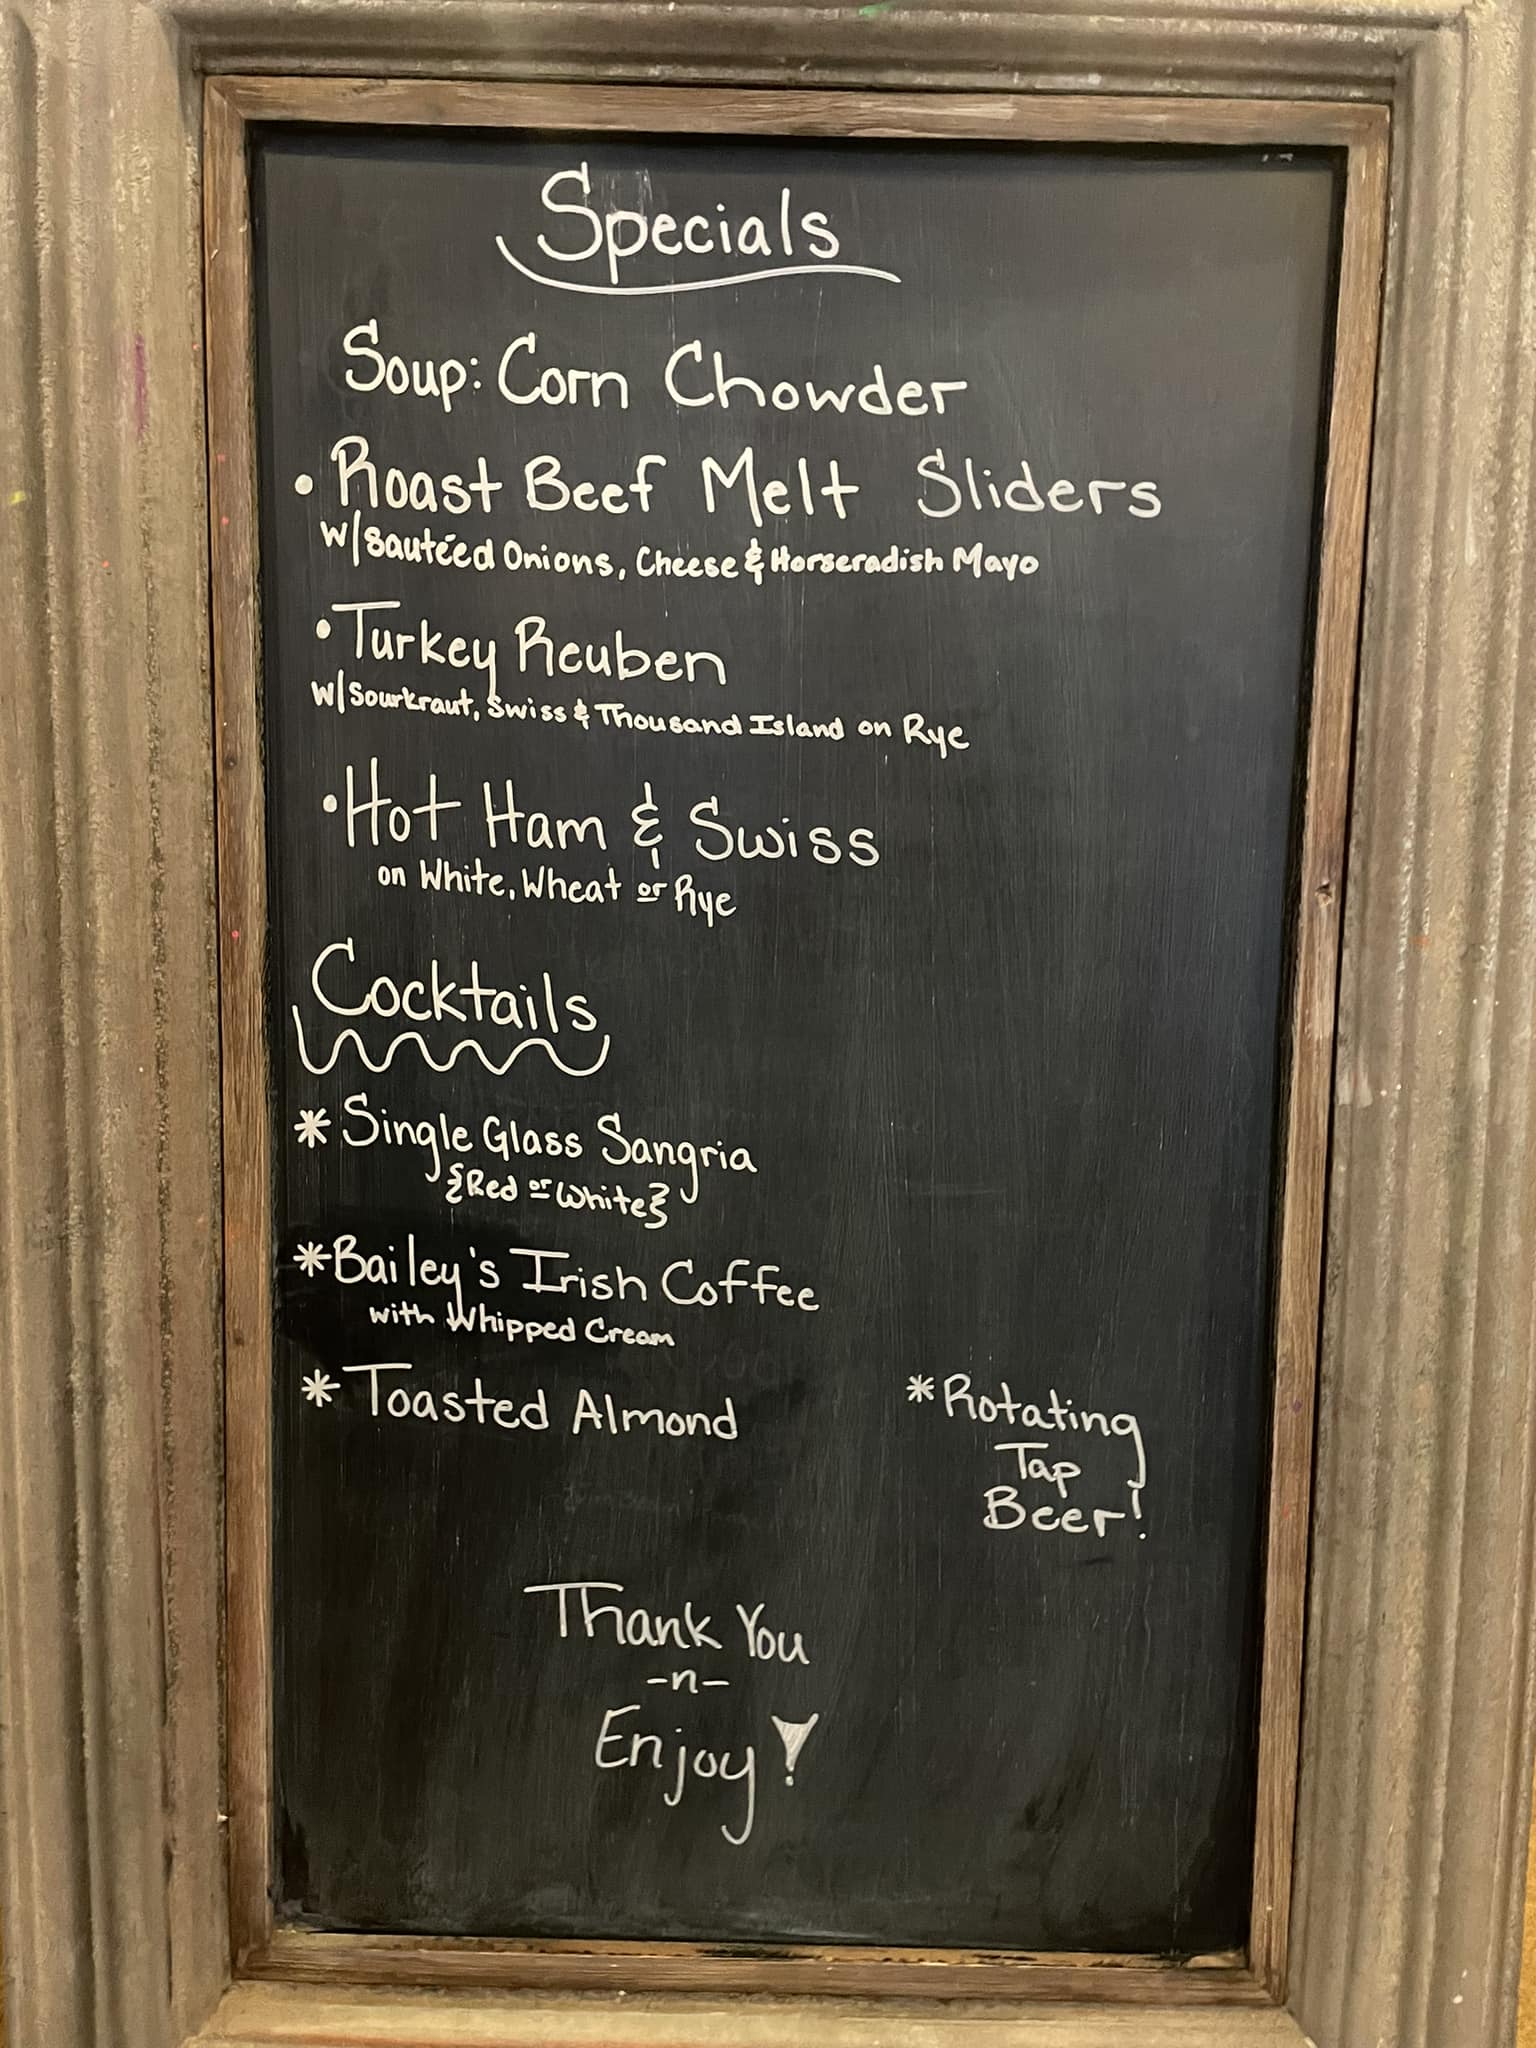 Specials
Soup: Corn Chowder
• Roast Beef Melt Sliders
w/Sautéed Onions, Cheese & Horseradish Mayo
• Turkey Reuben
w/Sourkraut, Swiss & Thousand Island on Rye
• Hot Ham & Swiss
on White, Wheat or Rye
Cocktails
* Single Glass Sangria
{Red or White}
* Bailey's Irish Coffee
with Whipped Cream
* Toasted Almond
* Rotating
Tap
Beer!
Thank You
-n-
Enjoy!